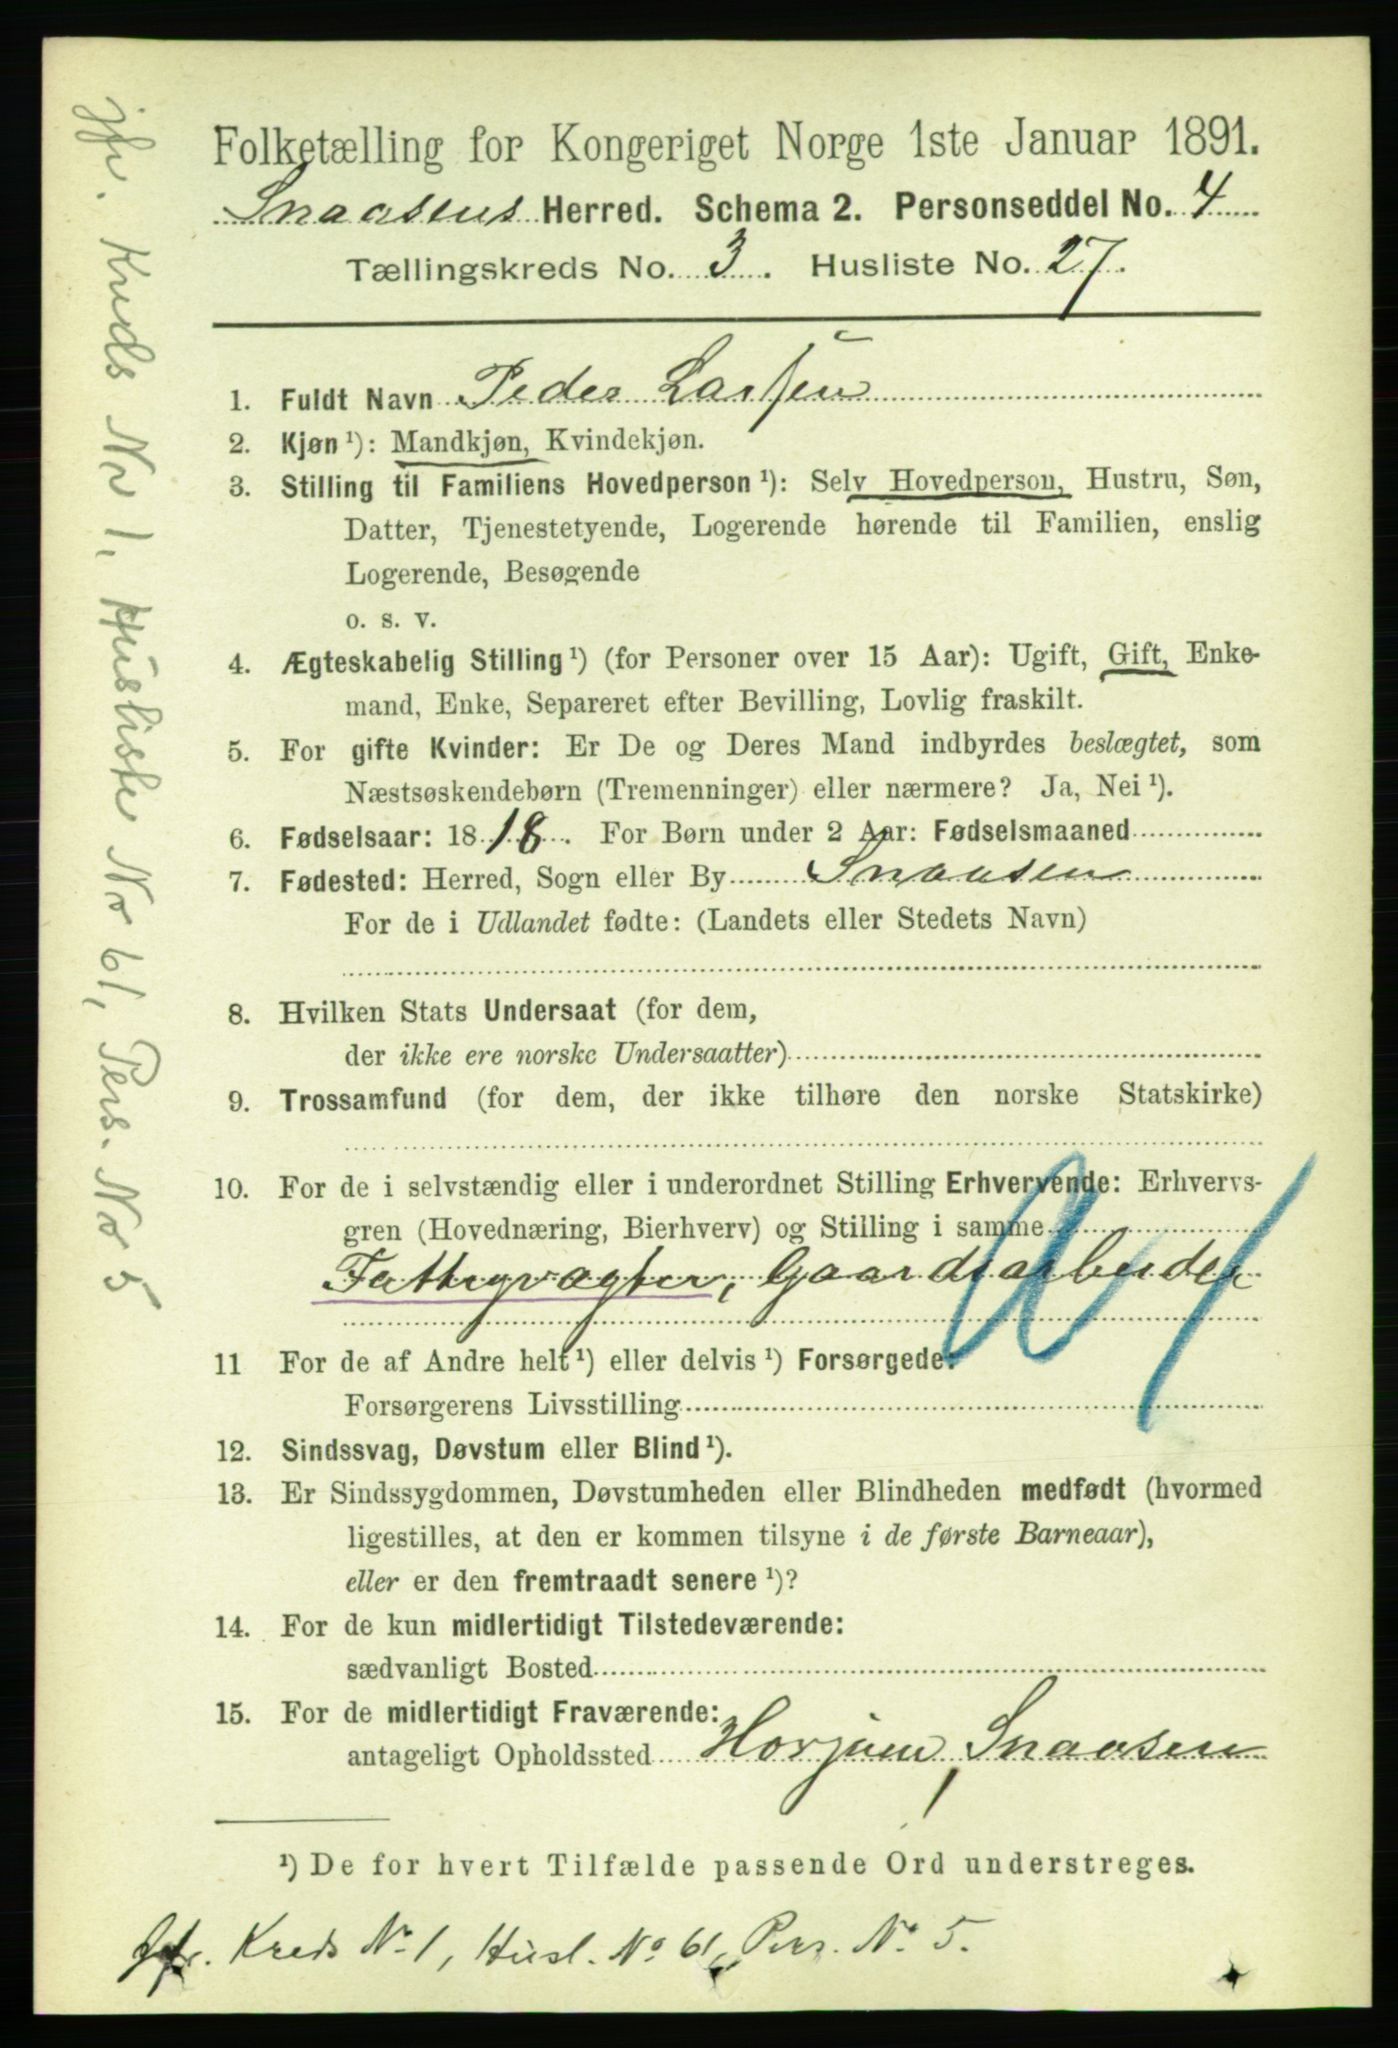 Folketælling for Kongeriget Norge 1ste Januar 1891.
Snaasens Herred. Schema 2. Personseddel No. 4
Tællingskreds No. 3. Husliste No. 27.
1. Fuldt Navn Peder Larsen
2. Kjøn ¹): Mandkjøn, Kvindekjøn.
3. Stilling til Familiens Hovedperson ¹): Selv Hovedperson, Hustru, Søn,
Datter, Tjenestetyende, Logerende hørende til Familien, enslig
Logerende, Besøgende
o. s. v.
4. Ægteskabelig Stilling ¹) (for Personer over 15 Aar): Ugift, Gift, Enke-
mand, Enke, Separeret efter Bevilling, Lovlig fraskilt.
5. For gifte Kvinder: Er De og Deres Mand indbyrdes beslægtet, som
Næstsøskendebørn (Tremenninger) eller nærmere? Ja, Nei ¹).
6. Fødselsaar: 1818. For Børn under 2 Aar: Fødselsmaaned
7. Fødested: Herred, Sogn eller By Snaasen
For de i Udlandet fødte: (Landets eller Stedets Navn)
8. Hvilken Stats Undersaat (for dem,
der ikke ere norske Undersaatter)
9. Trossamfund (for dem, der ikke tilhøre den norske Statskirke)
10. For de i selvstændig eller i underordnet Stilling Erhvervende: Erhvervs-
gren (Hovednæring, Bierhverv) og Stilling i samme
Fattigvagter, Gaardsarbeider
11 For de af Andre helt ¹) eller delvis ¹) Forsørgede:
Forsørgerens Livsstilling
12. Sindssvag, Døvstum eller Blind ¹).
13. Er Sindssygdommen, Døvstumheden eller Blindheden medfødt (hvormed
ligestilles, at den er kommen tilsyne i de første Barneaar),
eller er den fremtraadt senere ¹)?
14. For de kun midlertidigt Tilstedeværende:
sædvanligt Bosted
15. For de midlertidigt Fraværende:
antageligt Opholdssted Horjem, Snaasen
¹) De for hvert Tilfælde passende Ord understreges.
Jfr. Kreds No 1, Husl. No 61, Pers. No 5.
jfr. Kreds No 1, Husliste No 61, Pers. No 5